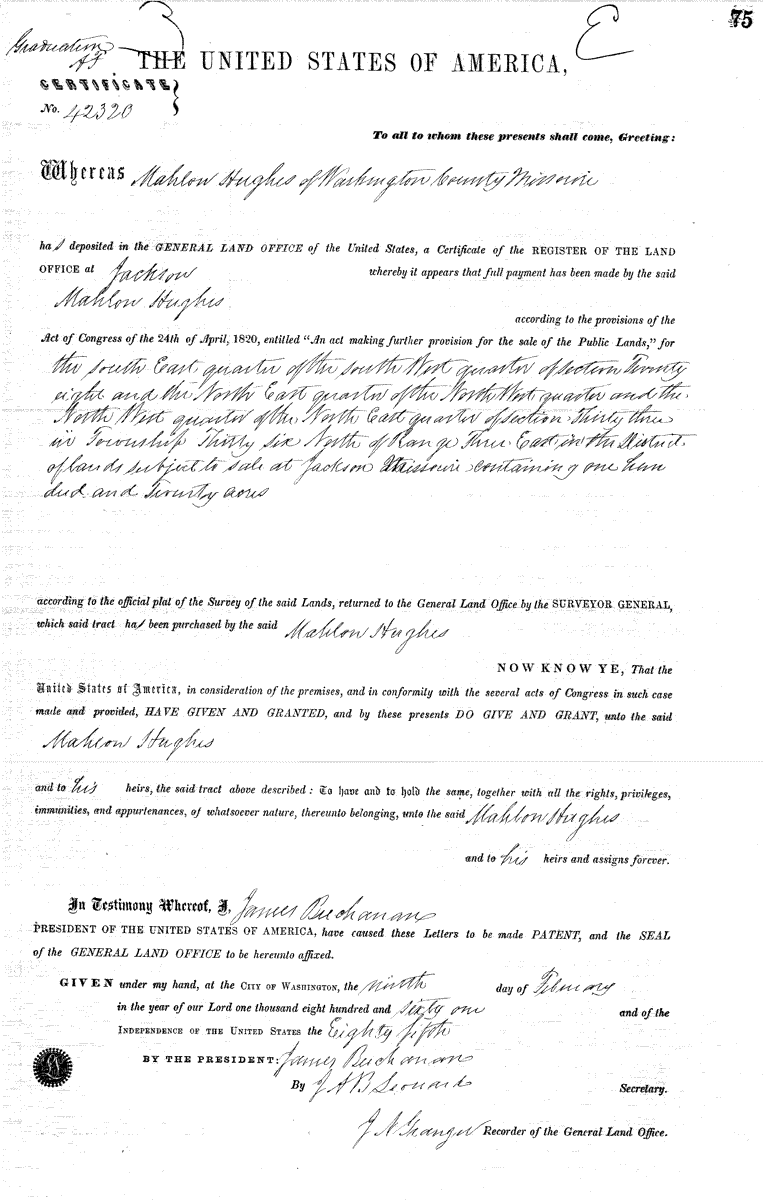 75
Graduation
Act
E
THE UNITED STATES OF AMERICA,
CERTIFICATE
No. 42320
To all to whom these presents shall come, Greeting:
Whereas Mahlon Hughes of Washington County Missouri
has deposited in the GENERAL LAND OFFICE of the United States, a Certificate of the REGISTER OF THE LAND
OFFICE at Jackson whereby it appears that full payment has been made by the said
Mahlon Hughes
according to the provisions of the
Act of Congress of the 24th of April, 1820, entitled "An act making further provision for the sale of the Public Lands," for
the South East quarter of the South West quarter of section Twenty
eight and the North East quarter of the North West quarter and the
North West quarter of the North East quarter of section Thirty three
in Township Thirty six North of Range Three East, in the District
of lands subject to sale at Jackson Missouri containing one hun
dred and Twenty acres
according to the official plat of the Survey of the said Lands, returned to the General Land Office by the SURVEYOR GENERAL,
which said tract has been purchased by the said Mahlon Hughes
NOW KNOW YE, That the
United States of America, in consideration of the premises, and in conformity with the several acts of Congress in such case
made and provided, HAVE GIVEN AND GRANTED, and by these presents DO GIVE AND GRANT, unto the said
Mahlon Hughes
and to his heirs, the said tract above described: To have and to hold the same, together with all the rights, privileges,
immunities, and appurtenances, of whatsoever nature, thereunto belonging, unto the said Mahlon Hughes
and to his heirs and assigns forever.
In Testimony Whereof, I, James Buchanan
PRESIDENT OF THE UNITED STATES OF AMERICA, have caused these Letters to be made PATENT, and the SEAL
of the GENERAL LAND OFFICE to be hereunto affixed.
GIVEN under my hand, at the CITY OF WASHINGTON, the ninth day of February
in the year of our Lord one thousand eight hundred and sixty one and of the
INDEPENDENCE OF THE UNITED STATES the Eighty fifth
BY THE PRESIDENT: James Buchanan
By J A B Leonard Secretary.
J N Granger Recorder of the General Land Office.